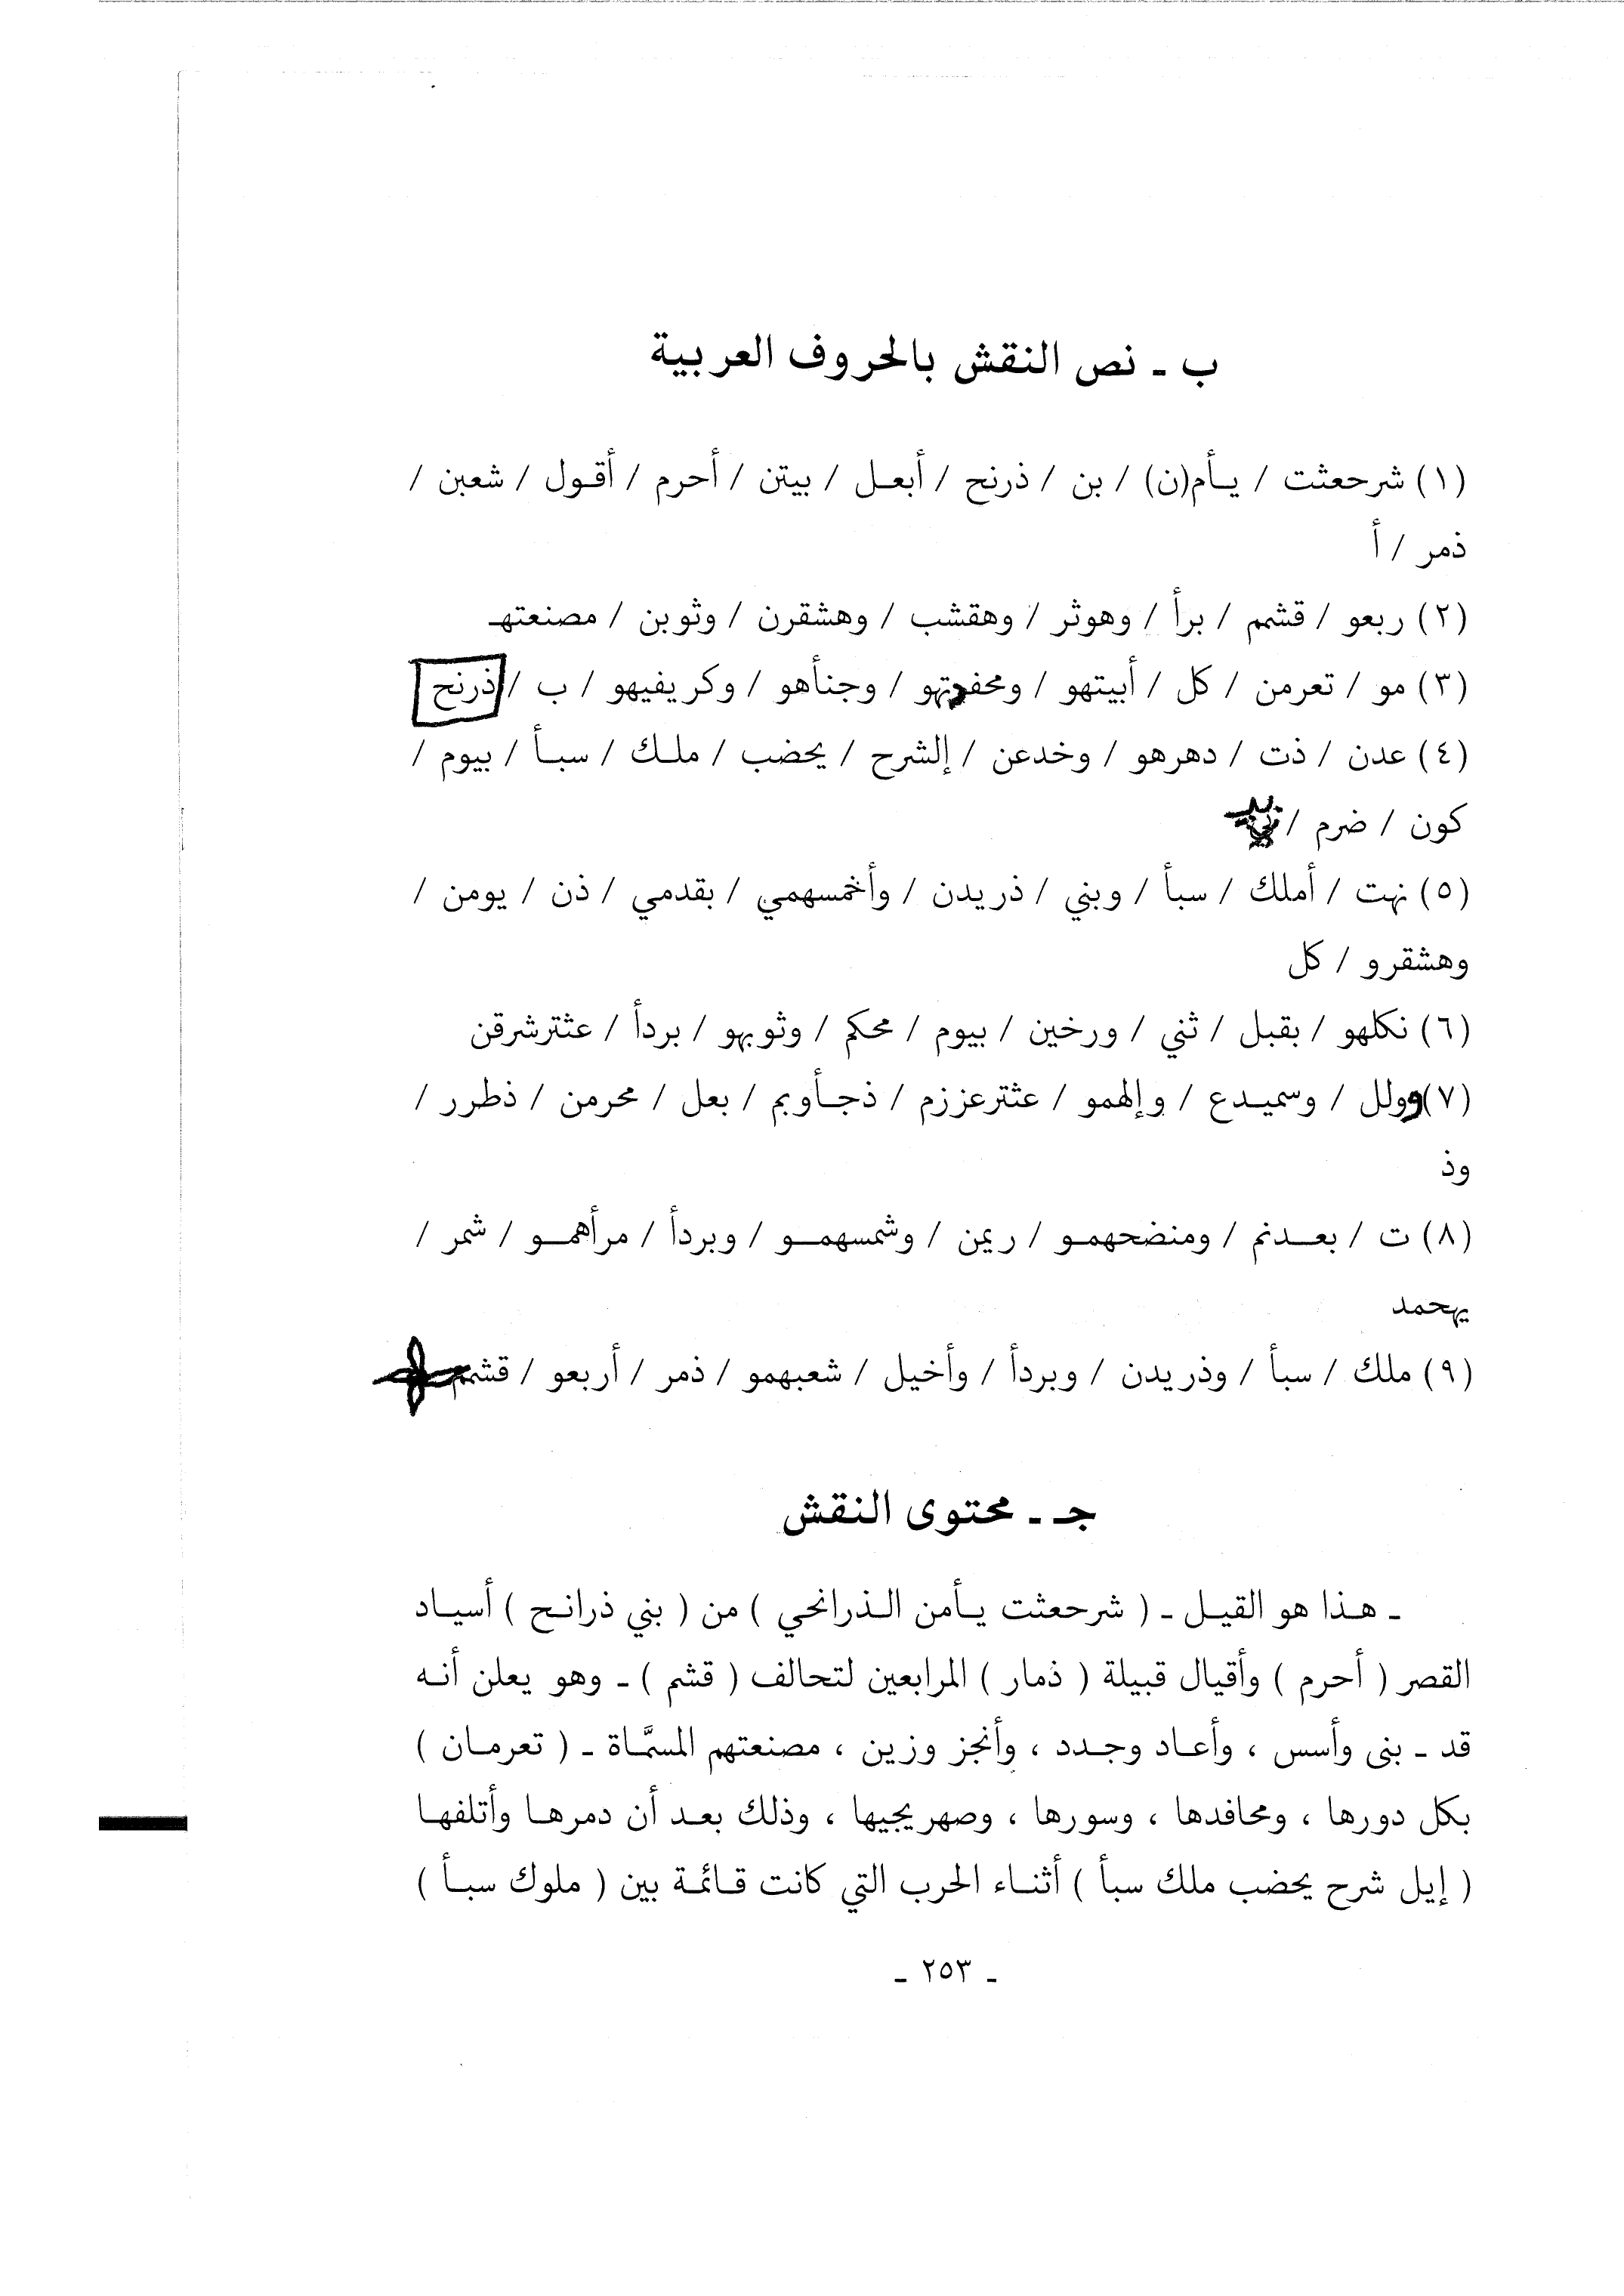 ب ـ نص النقش بالحروف العربية
(١) شرحعثت / يـأم(ن) / بن / ذرنح / أبعـل / بيتن / أحرم / أقـول / شعبن /
ذمر / أ
(٢) ربعو / قشمم / برأ / وهوثر / وهقشب / وهشقرن / وثوبن / مصنعتهـ
(٣) مو / تعرمن / كل / أبيتهو / ومحفدتهو / وجنأهو / وكريفيهو / ب / ذرنح
(٤) عدن / ذت / دهرهو / وخدعن / إلشرح / يحضب / ملـك / سبـأ / بيوم /
كون / ضرم /
(٥) نهت / أملك / سبأ / وبني / ذريدن / وأخمسهمي / بقدمي / ذن / يومن /
وهشقرو / كل
(٦) نكلهو / بقبل / ثني / ورخين / بيوم / محكم / وثوبهو / بردأ / عثترشرقن
(٧) وولل / وسميـدع / وإلهمو / عثترعززم / ذجـأوبم / بعل / محرمن / ذطرر /
وذ
(٨) ت / بعـدنم / ومنضحهمـو / ريمن / وشمسهمـو / وبردأ / مرأهمـو / شمر /
يهحمد
(٩) ملك / سبأ / وذريدن / وبردأ / وأخيل / شعبهمو / ذمر / أربعو / قشمم
جـ ـ محتوى النقش
ـ هـذا هو القيـل ـ ( شرحعثت يـأمن الـذرانحي ) من ( بني ذرانـح ) أسيـاد
القصر ( أحرم ) وأقيال قبيلة ( ذمار ) المرابعين لتحالف ( قشم ) ـ وهو يعلن أنـه
قد ـ بنى وأسس ، وأعـاد وجـدد ، وأنجز وزين ، مصنعتهم المسمَّاة ـ ( تعرمـان )
بكل دورها ، ومحافدها ، وسورها ، وصهريجيها ، وذلك بعـد أن دمرهـا وأتلفهـا
( إيل شرح يحضب ملك سبأ ) أثنـاء الحرب التي كانت قـائمـة بين ( ملوك سبـأ )
ـ ٢٥٣ ـ